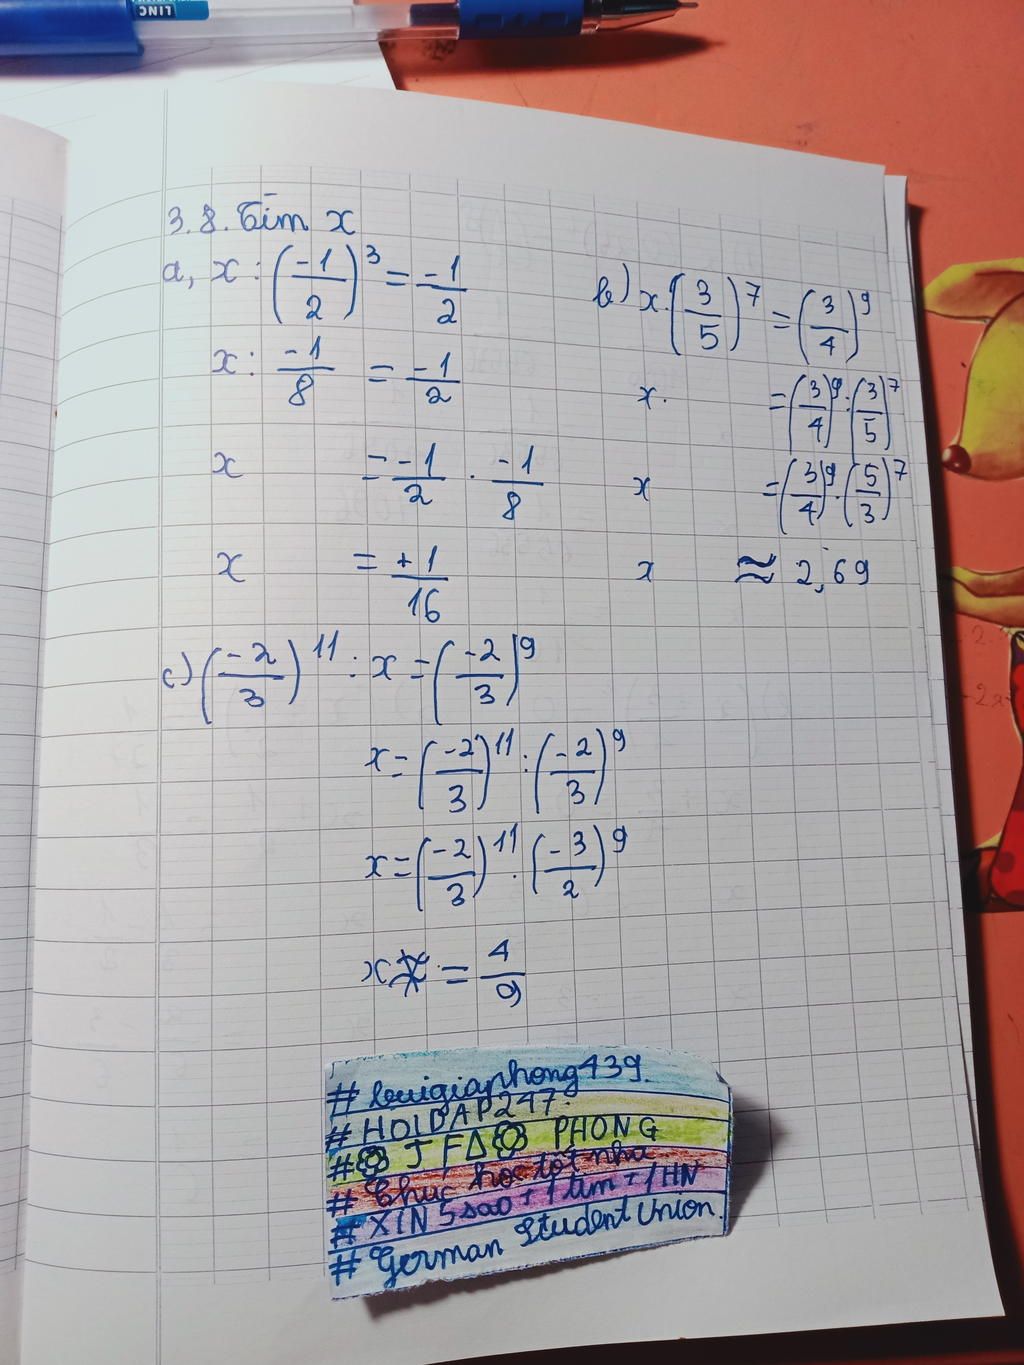 LINC
3.8. Tìm x
a, x : (-1/2)^3 = -1/2
x : -1/8 = -1/2
x = -1/2 . -1/8
x = +1/16
b) x . (3/5)^7 = (3/4)^9
x . = (3/4)^9 : (3/5)^7
x = (3/4)^9 . (5/3)^7
x ≈ 2,69
c) (-2/3)^11 : x = (-2/3)^9
x = (-2/3)^11 : (-2/3)^9
x = (-2/3)^11 . (-3/2)^9
x = 4/9
# buigiaphong439.
# HOIDAP247.
# JFA PHONG
# Chúc học tốt nha
# XIN 5 sao + 1 tim + 1 HN
# German Student Union.